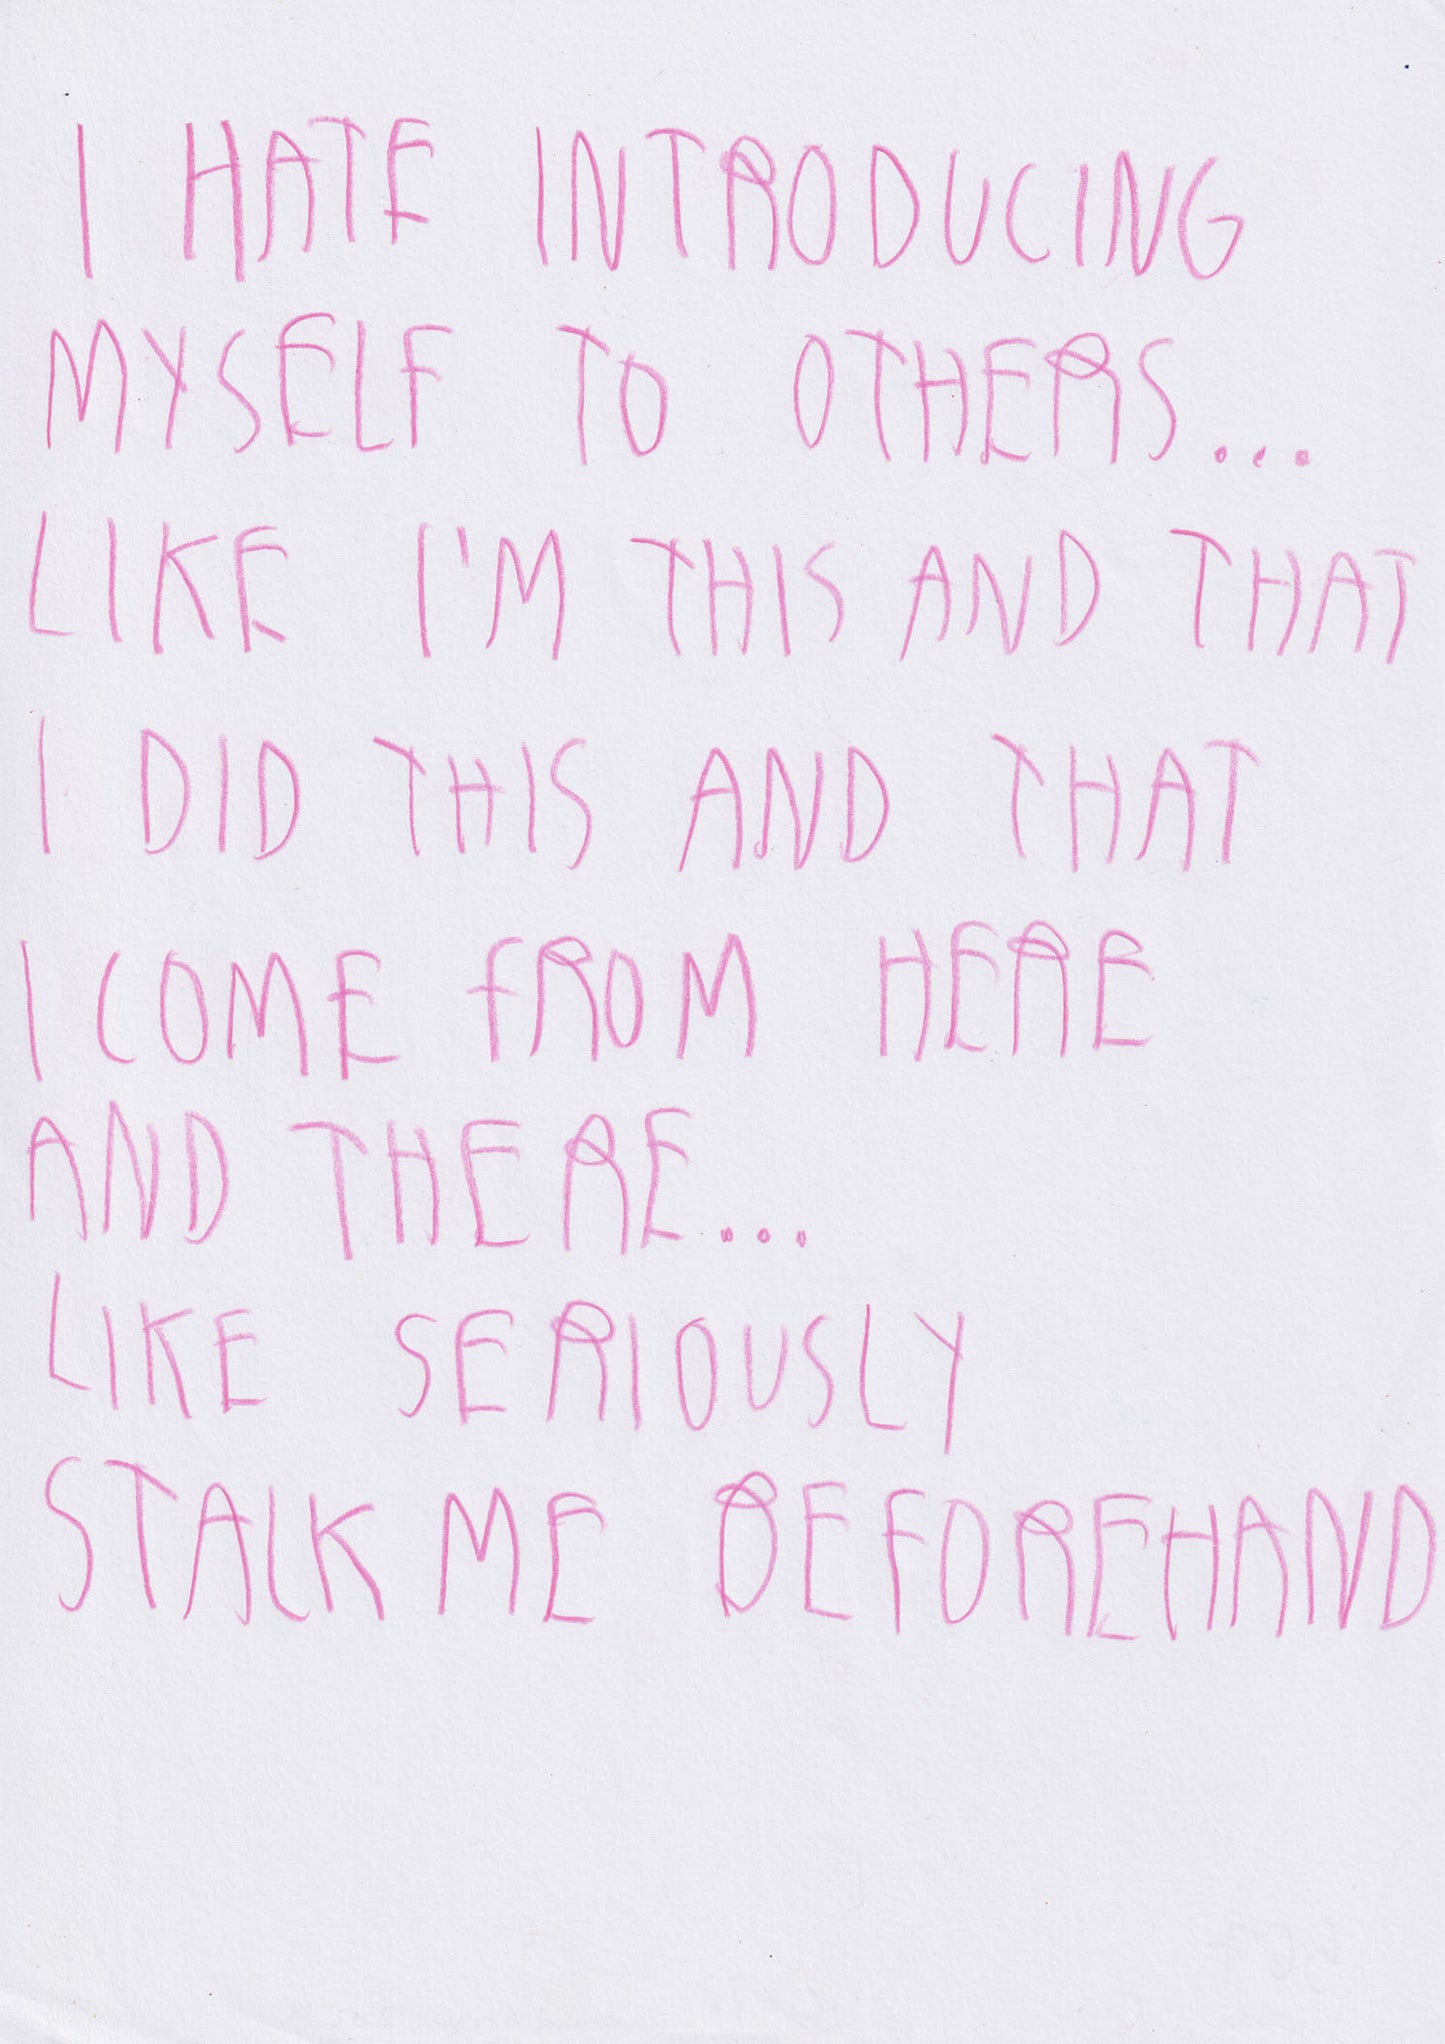 I HATE INTRODUCING
MYSELF TO OTHERS...
LIKE I'M THIS AND THAT
I DID THIS AND THAT
I COME FROM HERE
AND THERE...
LIKE SERIOUSLY
STALK ME BEFOREHAND